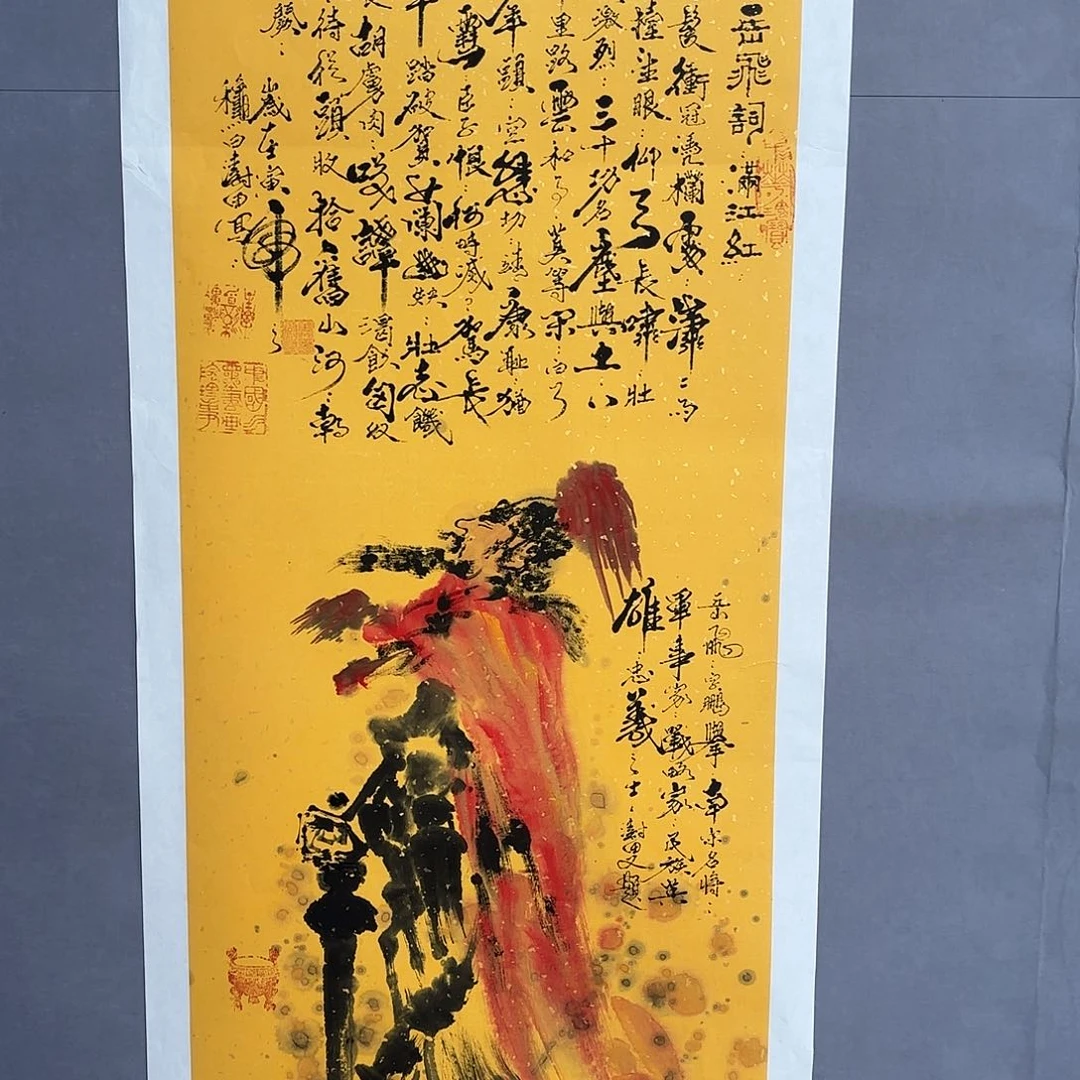 岳飛詞：滿江紅
髮衝冠凭欄處：瀟〻雨
擡望眼仰天長嘯壯
激烈：三十功名塵與土八
里路雲和月莫等閑白了
年頭：空悲切：靖康恥猶
雪：臣子恨何時滅駕長
踏破賀蘭山缺：壯志饑
胡虜肉：笑譚渴飲匈奴
待從頭收拾舊山河：朝
歲在寅虎
岳飛：字鵬舉南宋名將：
軍事家：戰略家：民族英
雄：忠義之士：題